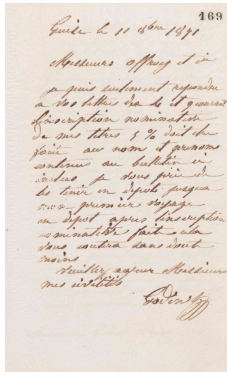 169
Guise le 11 8bre 1871
Messieurs Offroy et Cie
Je puis seulement répondre
à vos lettres du 6 et
l'inscription nominative
de mes titres 5 % doit être
faite au nom et prénoms
contenus au bulletin ci
inclus je vous prie de
les tenir en dépôt jusqu'à
mon premier voyage
en dépôt après l'inscription
nominative fait cela
vous coutera sans doute
moins
Veuillez agréer Messieurs
mes civilités
Godin